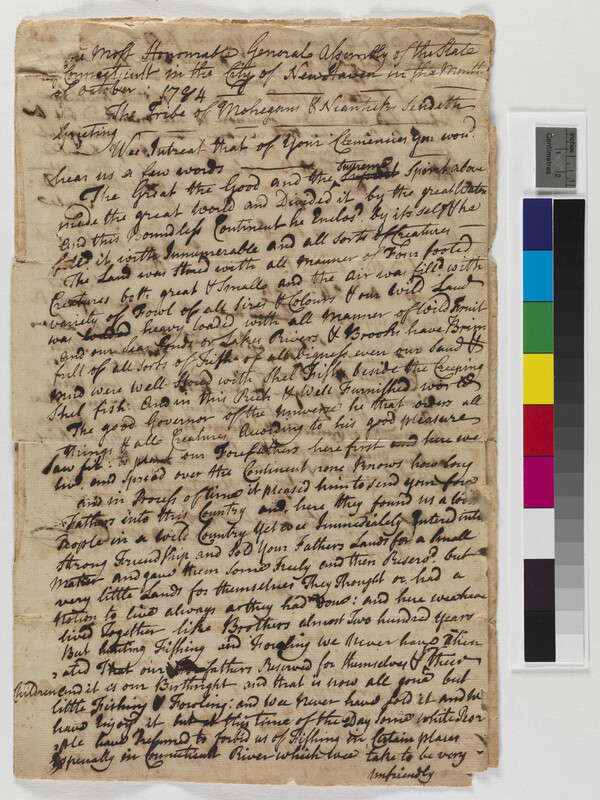 The Most Honourable General Assembly of the State
Connecticut in the City of New Haven in the Month
of October: 1784
The Tribe of Mohegans & Nianticks Sendeth
Greeting
Wee Intreat that of Your Clemencies You wou'd
hear us a few words
The Great the Good and the Supreme Spirit above
made the great world and Divided it by the great Waters
And this Boundless Continent he Enclosd. by its self & he
filld. it with Innumerable and all sorts of Creatures
The Land was Stored with all manner of Four footed
Creatures both great & Small and the air was filld with
variety of Fowl of all sizes & Colours & our wild Land
was heavy loaded with all Manner of Wild Fruit
and our clear Ponds or Lakes Rivers & Brooks have Brim
full of all Sorts of Fish of all Bigness even our Sand &
mud were well Stord with Shel Fish beside the Creeping
Shel fish: And in this Rich & Well Furnished world
The good Governor of the Universe he that orders all
Things & all Creatures According to his good pleasure
saw fit to plant our Forefathers here first and here we
live and Spread over the Continent none Knows how long
and in Process of time it pleased him to send your fore
Fathers into this Country and here they found us a
People in a wild Country Yet wee Immediately Entered into
strong Friendship and Sold Your Fathers Lands for a Small
Matter and gave them Some freely and then Reserv'd but
very little Lands for themselves They thought or had a
Notion to live always as they had Done: and here wee have
lived Together like Brothers almost Two hundred Years
But Hunting Fishing and Fowling we Never have Alien
ated That our fathers Reserved for themselves & their
Children and it is our Birthright and that is now all gone but
little Fishing & Fowling: and wee Never have Sold it and We
have Enjoyd it but at this time of the Day Some white Peo
ple have Presumed to forbid us of Fishing in Certain places
Especially in Connecticut River which wee take to be very
unfriendly